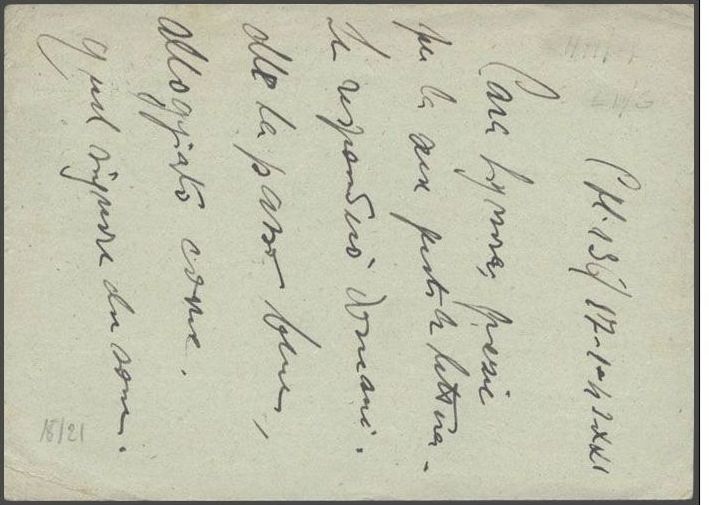 17-1-42 XX
Cara Signora, grazie
per la sua gentile lettera.
Le risponderò domani.
Me la passo bene,
alloggiato come
quel signore che sono.
18/21